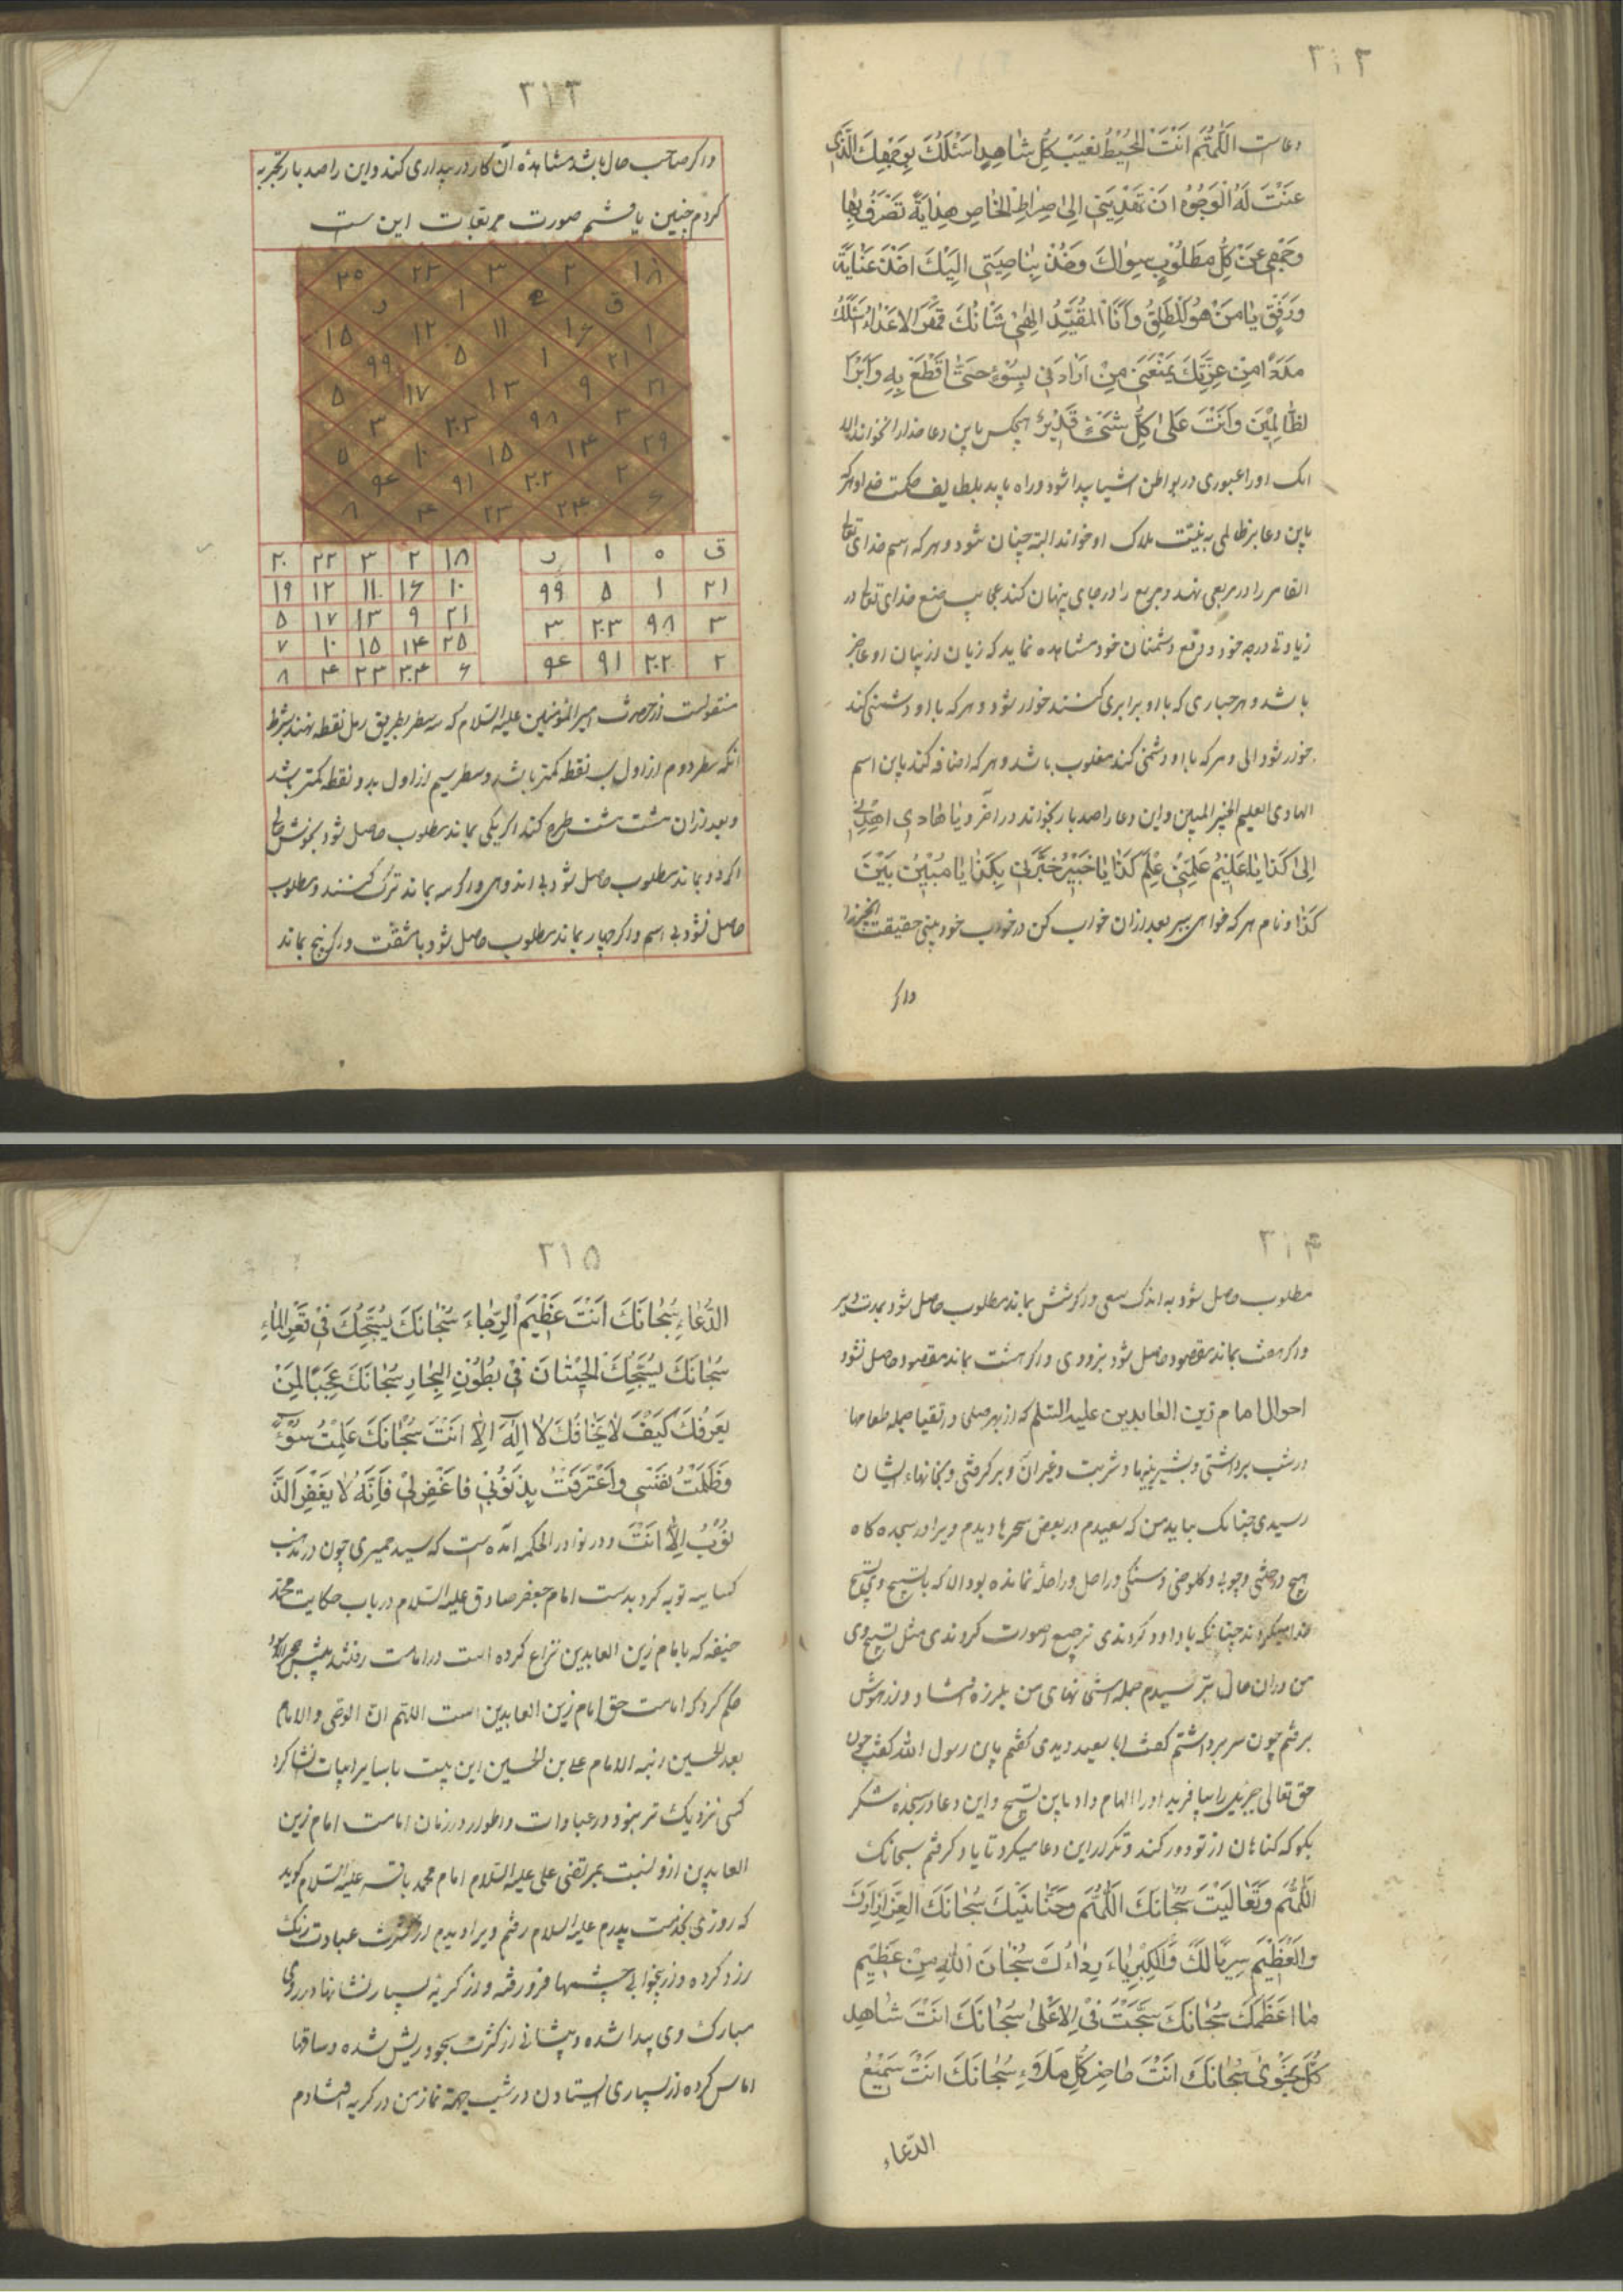 ۳۱۲
دعاست اللّهُمَّ اَنْتَ المُحیْطُ بغَیْبَ کُلِّ شاهِدٍ اَسْئَلُکَ بِوَجْهِکَ الَّذی
عَنَتْ لَهُ الْوُجُوهُ اَنْ تَهْدِیَنی اِلیٰ صِراطِ الخاصِ هِدایَةً تَصْرِفُ بِها
وَجْهی عَنْ کُلِّ مَطْلُوْبٍ سِواکَ وَخُذْ بِناصِیَتی اِلَیْکَ اَخْذَ عَنایَةً
وَرِفْقٍ یا مَنْ هُوَ المُطْلَقُ وَاَنَا المُقَیَّدُ اِلهیٰ شَانُکَ قَهْرَ الاعْداءِ اَسْئَلُکَ
مَدَدًا مِنْ عِزَّتِکَ یَمْنَعَنی مِنْ اَرادَنی بِسُوْءٍ حَتّٰی اَقْطَعَ بِهِ
لظّالِمِیْنَ وَاَنْتَ عَلیٰ کُلِّ شَیْئٍ قَدِیْرٌ هیچکس باین دعا خدارا نخواند الا
انک او را عبوری در بواطن اشیا پیدا شود و راه یابد بلطایف حکمت خدا و هرکه
باین دعا بر ظالمی به نیّت هلاک او خواند البته چنان شود و هرکه اسم خدای تعالی
القاهر را در مربعی نهد و مربع را در جای پنهان کند عجایب صنع خدای تعالی در
زیادتی درجه خود و دفع دشمنان خود مشاهده نماید که زبان از بیان او عاجز
باشد و هر جباری که با او برابری کند خوار شود و هرکه با او دشمنی کند
خوار شود الی و هرکه با او دشمنی کند مغلوب باشد و هرکه اضافه کند باین اسم
الهادی العلیم الخبیر المبین و این دعا را صد بار بخواند در آخر و یا هادی اهدنی
اِلیٰ کَذا یا عَلیْمُ عَلِّمَنی عِلْمَ کَذا یا خَبیْرُ خَبِّرْنی بِکَذا یا مُبیْنُ بَیِّنَ
کَذا و نام هرکه خواهی ببر بعد از آن خواب کن در خواب خود بینی حقیقت
واکر
۳۱۳
واکر صاحب حال باشد مشاهده آن کار در بیداری کند و این را صد بار تجربه
کردم چنین یافتم صورت مربعات این ست
۱۸ ۲ ۳ ۲۲ ۲۵
ق ه ا ر
۱ ۱۶ ۱۱ ۱۲ ۱۵
۲۱ ۱ ۵ ۹۹
۲۱ ۹ ۱۳ ۱۷ ۵
۳ ۹۸ ۲۰۳ ۳
۲۹ ۱۴ ۱۵ ۱۰ ۵
۲ ۲۰۲ ۹۱ ۹۴
۶ ۲۴ ۲۳ ۴ ۸
ق ه ا ر
۲۱ ۱ ۵ ۹۹
۳ ۹۸ ۲۰۳ ۳
۲ ۲۰۲ ۹۱ ۹۴
۱۸ ۲ ۳ ۲۲ ۲۰
۱۰ ۱۶ ۱۱ ۱۲ ۱۹
۲۱ ۹ ۱۳ ۱۷ ۵
۲۵ ۱۴ ۱۵ ۱۰ ۷
۶ ۲۰۴ ۲۳ ۴ ۸
منقولست از حضرت امیر المؤمنین علیه السّلام که سه سطر بطریق رمل نقطه نهند بشرط
آنکه سطر دوم از اول بیک نقطه کمتر باشد و سطر سیم از اول بدو نقطه کمتر باشد
و بعد از آن هشت هشت طرح کند اکر یکی بماند مطلوب حاصل شود بخوش
اکر دو بماند مطلوب حاصل شود بی اندوهی و اکر سه بماند ترک کنند و مطلوب
حاصل نشود بی اسم و اکر چهار بماند مطلوب حاصل شود با مشقت و اکر پنج بماند
۳۱۴
مطلوب حاصل شود به اندک سعی و اکر شش بماند مطلوب حاصل شود بمدت دیر
و اکر هفت بماند مقصود حاصل شود بزودی و اکر هشت بماند مقصود حاصل نشود
احوال امام زین العابدین علیه السّلم که از بهر صلحی و اتقیا جمله طعامها
در شب برداشتی و بشیرینیها و شربت و غیر آن و بر کرفتی و بخانهاء ایشان
رسیدی چنانک بباید من که سعیدم در بعض سحرها دیدم ویرا در سجده کاه
هیچ درختی و چوبی و کلوخی و سنکی و راحل و راحلهٔ نمانده بود الا که با تسبیح وی تسبیح
خدا میکردند چنانکه با داود کردندی ترجیع صورت کردندی مثل تسبیح وی
من در آن حال بترسیدم جمله استخوانهای من بلرزه افتاد و از هوش
برفتم چون سر برداشتم کفت ابا سعید دیدی کفتم یابن رسول الله کفت چون
حق تعالی جبرئیل را بیافرید او را الهام داد باین تسبیح و این دعا در سجده شکر
بکو که کناهان از تو دور کند و تکرار این دعا میکرد تا یاد کرفتم سبحانک
اللّهُمَّ وَتَعالَیْتَ سُبْحانَکَ اللّهُمَّ وَحَنانَیْکَ سُبْحانَکَ العِزُّ اِزارُکَ
وَالْعَظِیْمَ سِرْبالُکَ وَالْکِبْرِیاءُ رِداءُکَ سُبْحانَ اللهِ مِنْ عَظِیْمِ
ما اَعْظَمَکَ سُبْحانَکَ سُبِّحْتَ فیْ الاَعْلیٰ سُبْحانَکَ اَنْتَ شاهِدُ
کُلِّ نَجْویٰ سُبْحانَکَ اَنْتَ حاضِرُ کُلِّ مَلَاءٍ سُبْحانَکَ اَنْتَ سَمِیْعُ
الدّعاء
۳۱۵
الدُّعاءِ سُبْحانَکَ اَنْتَ عَظِیْمَ الرَّجاءَ سُبْحانَکَ یُسَبِّحُکَ فیْ قَعْرِ الماءِ
سُبْحانَکَ یُسَبِّحُکَ الحِیْتانَ فیْ بُطُوْنِ البِحارِ سُبْحانَکَ عَجَبًا لِمَنْ
یَعْرِفُکَ کَیْفَ لا یَخافُکَ لا اِلٰهَ اِلّا اَنْتَ سُبْحانَکَ عَمِلْتُ سُوْءً
وَظَلَمْتُ نَفْسی وَاعْتَرَفْتُ بِذُنُوْبی فَاغْفِرْلیْ فَاِنَّهُ لا یَغْفِرُ الذُّ
نُوْبَ اِلّا اَنْتَ و در نوادر الحکمه آمده است که سید حمیری چون در مذهب
کسانیه توبه کرد بدست امام جعفر صادق علیه السّلام در باب حکایت محمّد
حنیفه که با امام زین العابدین نزاع کرده است در امامت رفتند پیش حجر الاسود
حکم کرد که امامت حق امام زین العابدین است اللهم ان الوصی و الامام
بعد الحسین ابنه الامام علی بن الحسین این بیت با سایر ابیات انشا کرد
کسی نزدیک تر نبود در عبادات و اطوار در زمان امامت امام زین
العابدین از و نسبت بمرتضی علی علیه السّلام امام محمد باقر علیه السّلام کوید
که روزی بخدمت پدرم علیه السلام رفتم ویرا دیدم از کثرت عبادت رنک
زرد کرده و از بیخوابی چشمها فرو رفته و از کریه بسیار نشانها در روی
مبارک وی پیدا شده و پیشانی از کثرت سجود ریش شده و ساقها
اماس کرده از بسیاری ایستادن در شب بجهة نماز من در کریه افتادم